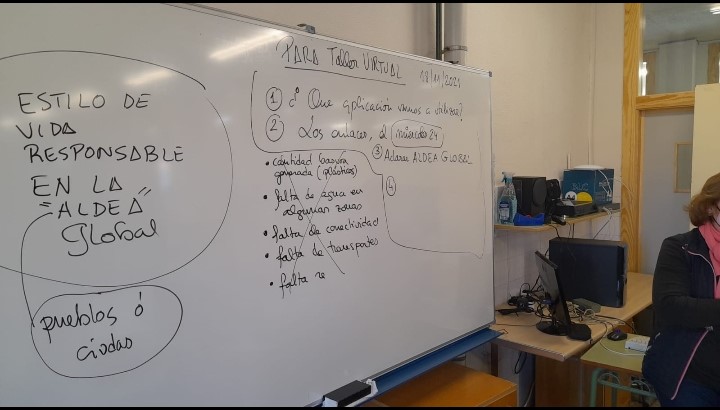 ESTILO DE
VIDA
RESPONSABLE
EN LA
"ALDEA"
Global
pueblos ó
ciudas
PARA Taller VIRTUAL 18/11/2021
① ¿ Que aplicación vamos a utilizar?
② Los enlaces, el miércoles 24
③ Aclarar ALDEA GLOBAL
④
• cantidad basura
generada (plásticos)
• falta de agua en
algunas zonas
• falta de conectividad
• falta de transportes
• falta re